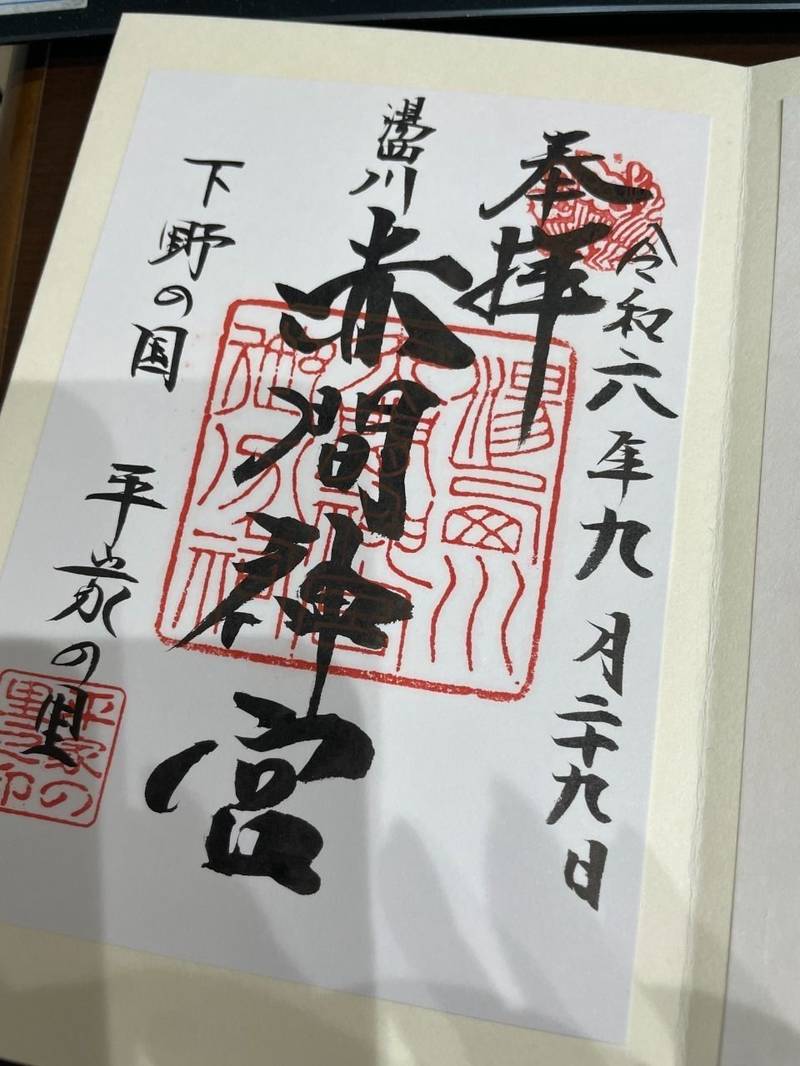 令和六年九月二十九日
奉拝
湯西川
赤間神宮
下野の国 平家の里
平家の里之印